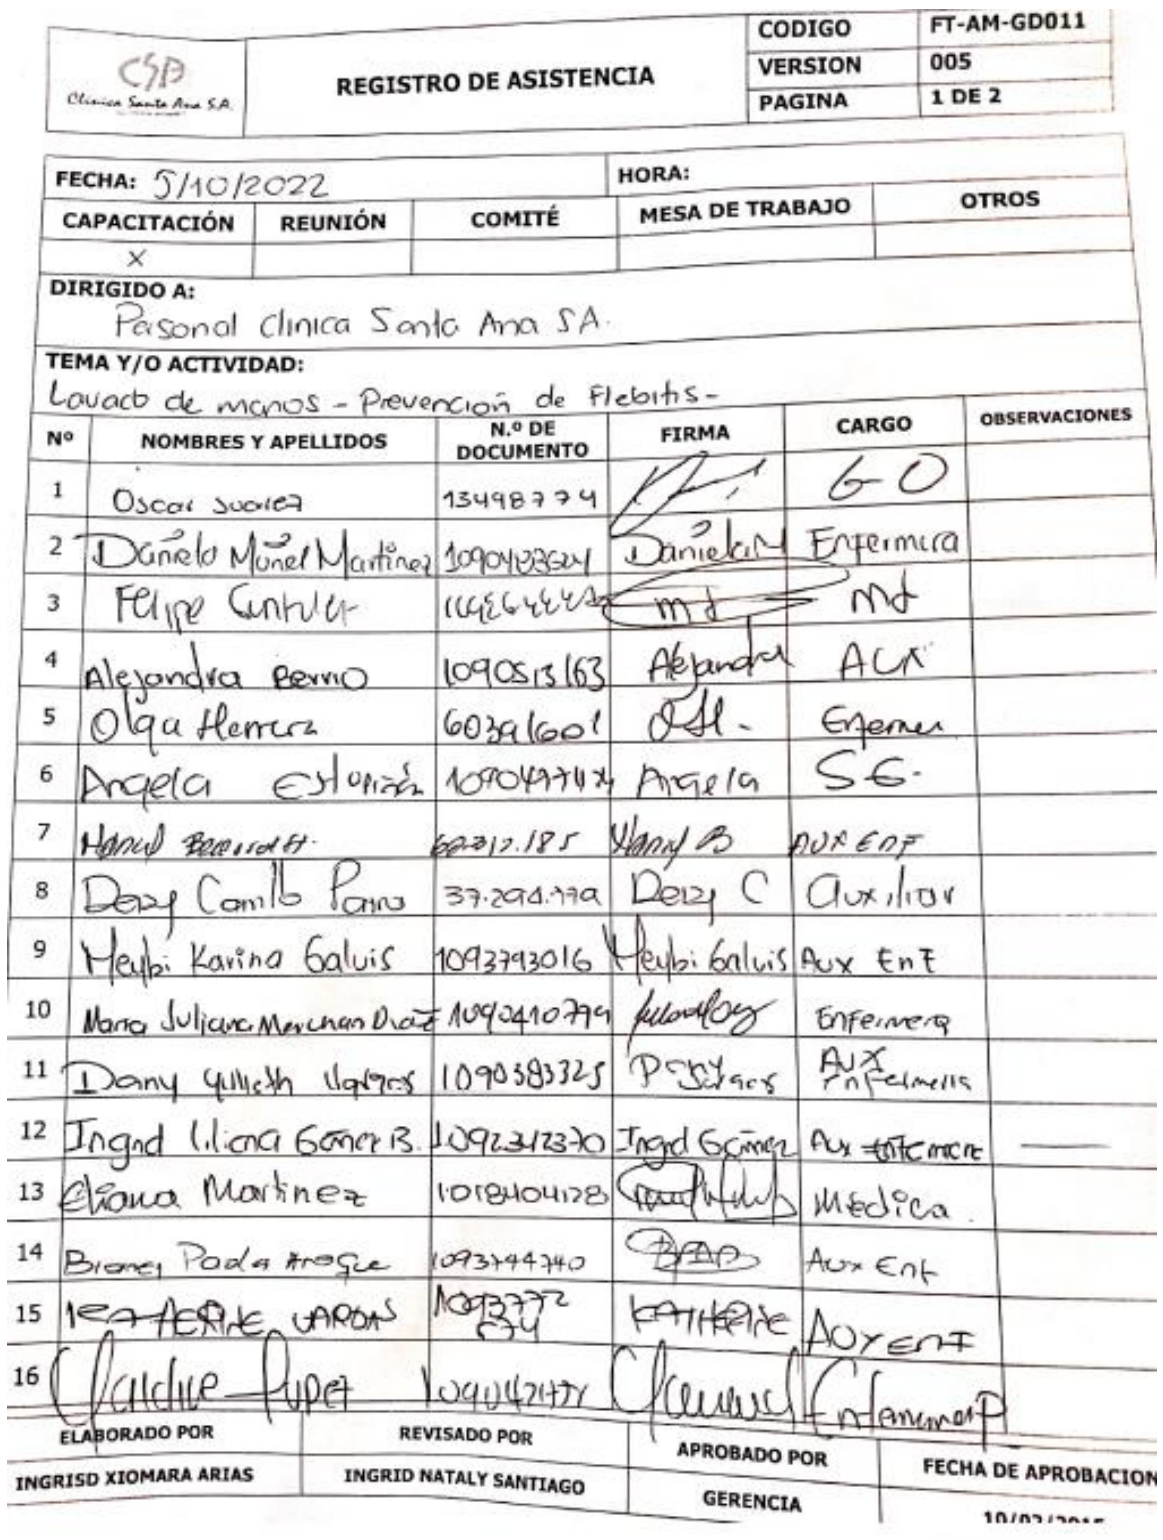 CSA
Clinica Santa Ana S.A.
REGISTRO DE ASISTENCIA
CODIGO FT-AM-GD011
VERSION 005
PAGINA 1 DE 2
FECHA: 5/10/2022 HORA:
CAPACITACIÓN REUNIÓN COMITÉ MESA DE TRABAJO OTROS
X
DIRIGIDO A:
Personal Clinica Santa Ana SA.
TEMA Y/O ACTIVIDAD:
Lavado de manos - Prevención de Flebitis -
Nº NOMBRES Y APELLIDOS N.º DE DOCUMENTO FIRMA CARGO OBSERVACIONES
1 Oscar Suarez 13498774 GO
2 Daniela Martinez Daniela M Enfermera
3 Felipe md md
4 Alejandra Berrio 1090513163 Alejandra AUX
5 Olga Herrera 60391601 OH.
6 Angela Estupiñán Angela
7 AUX ENF
8 Deisy Camilo Parra 37.294.779 Deisy C auxiliar
9 Heybi Karina Galvis 1093793016 Heybi Galvis Aux Enf
10 Maria Juliana Merchan Diaz 1090410799 Enfermera
11 Dany Yulieth Vargas 1090383325 Dany Vargas AUX enfermeria
12 Ingrid Liliana Gómez B. 1092342370 Ingrid Gómez Aux
13 Eliana Martinez 1018404128 Médica
14 Paola Araque 1093744740 Aux Enf
15 KATHERINE VARGAS 1093772 674 KATHERINE AUX ENF
16
ELABORADO POR REVISADO POR APROBADO POR FECHA DE APROBACION
INGRISD XIOMARA ARIAS INGRID NATALY SANTIAGO GERENCIA 10/02/2015